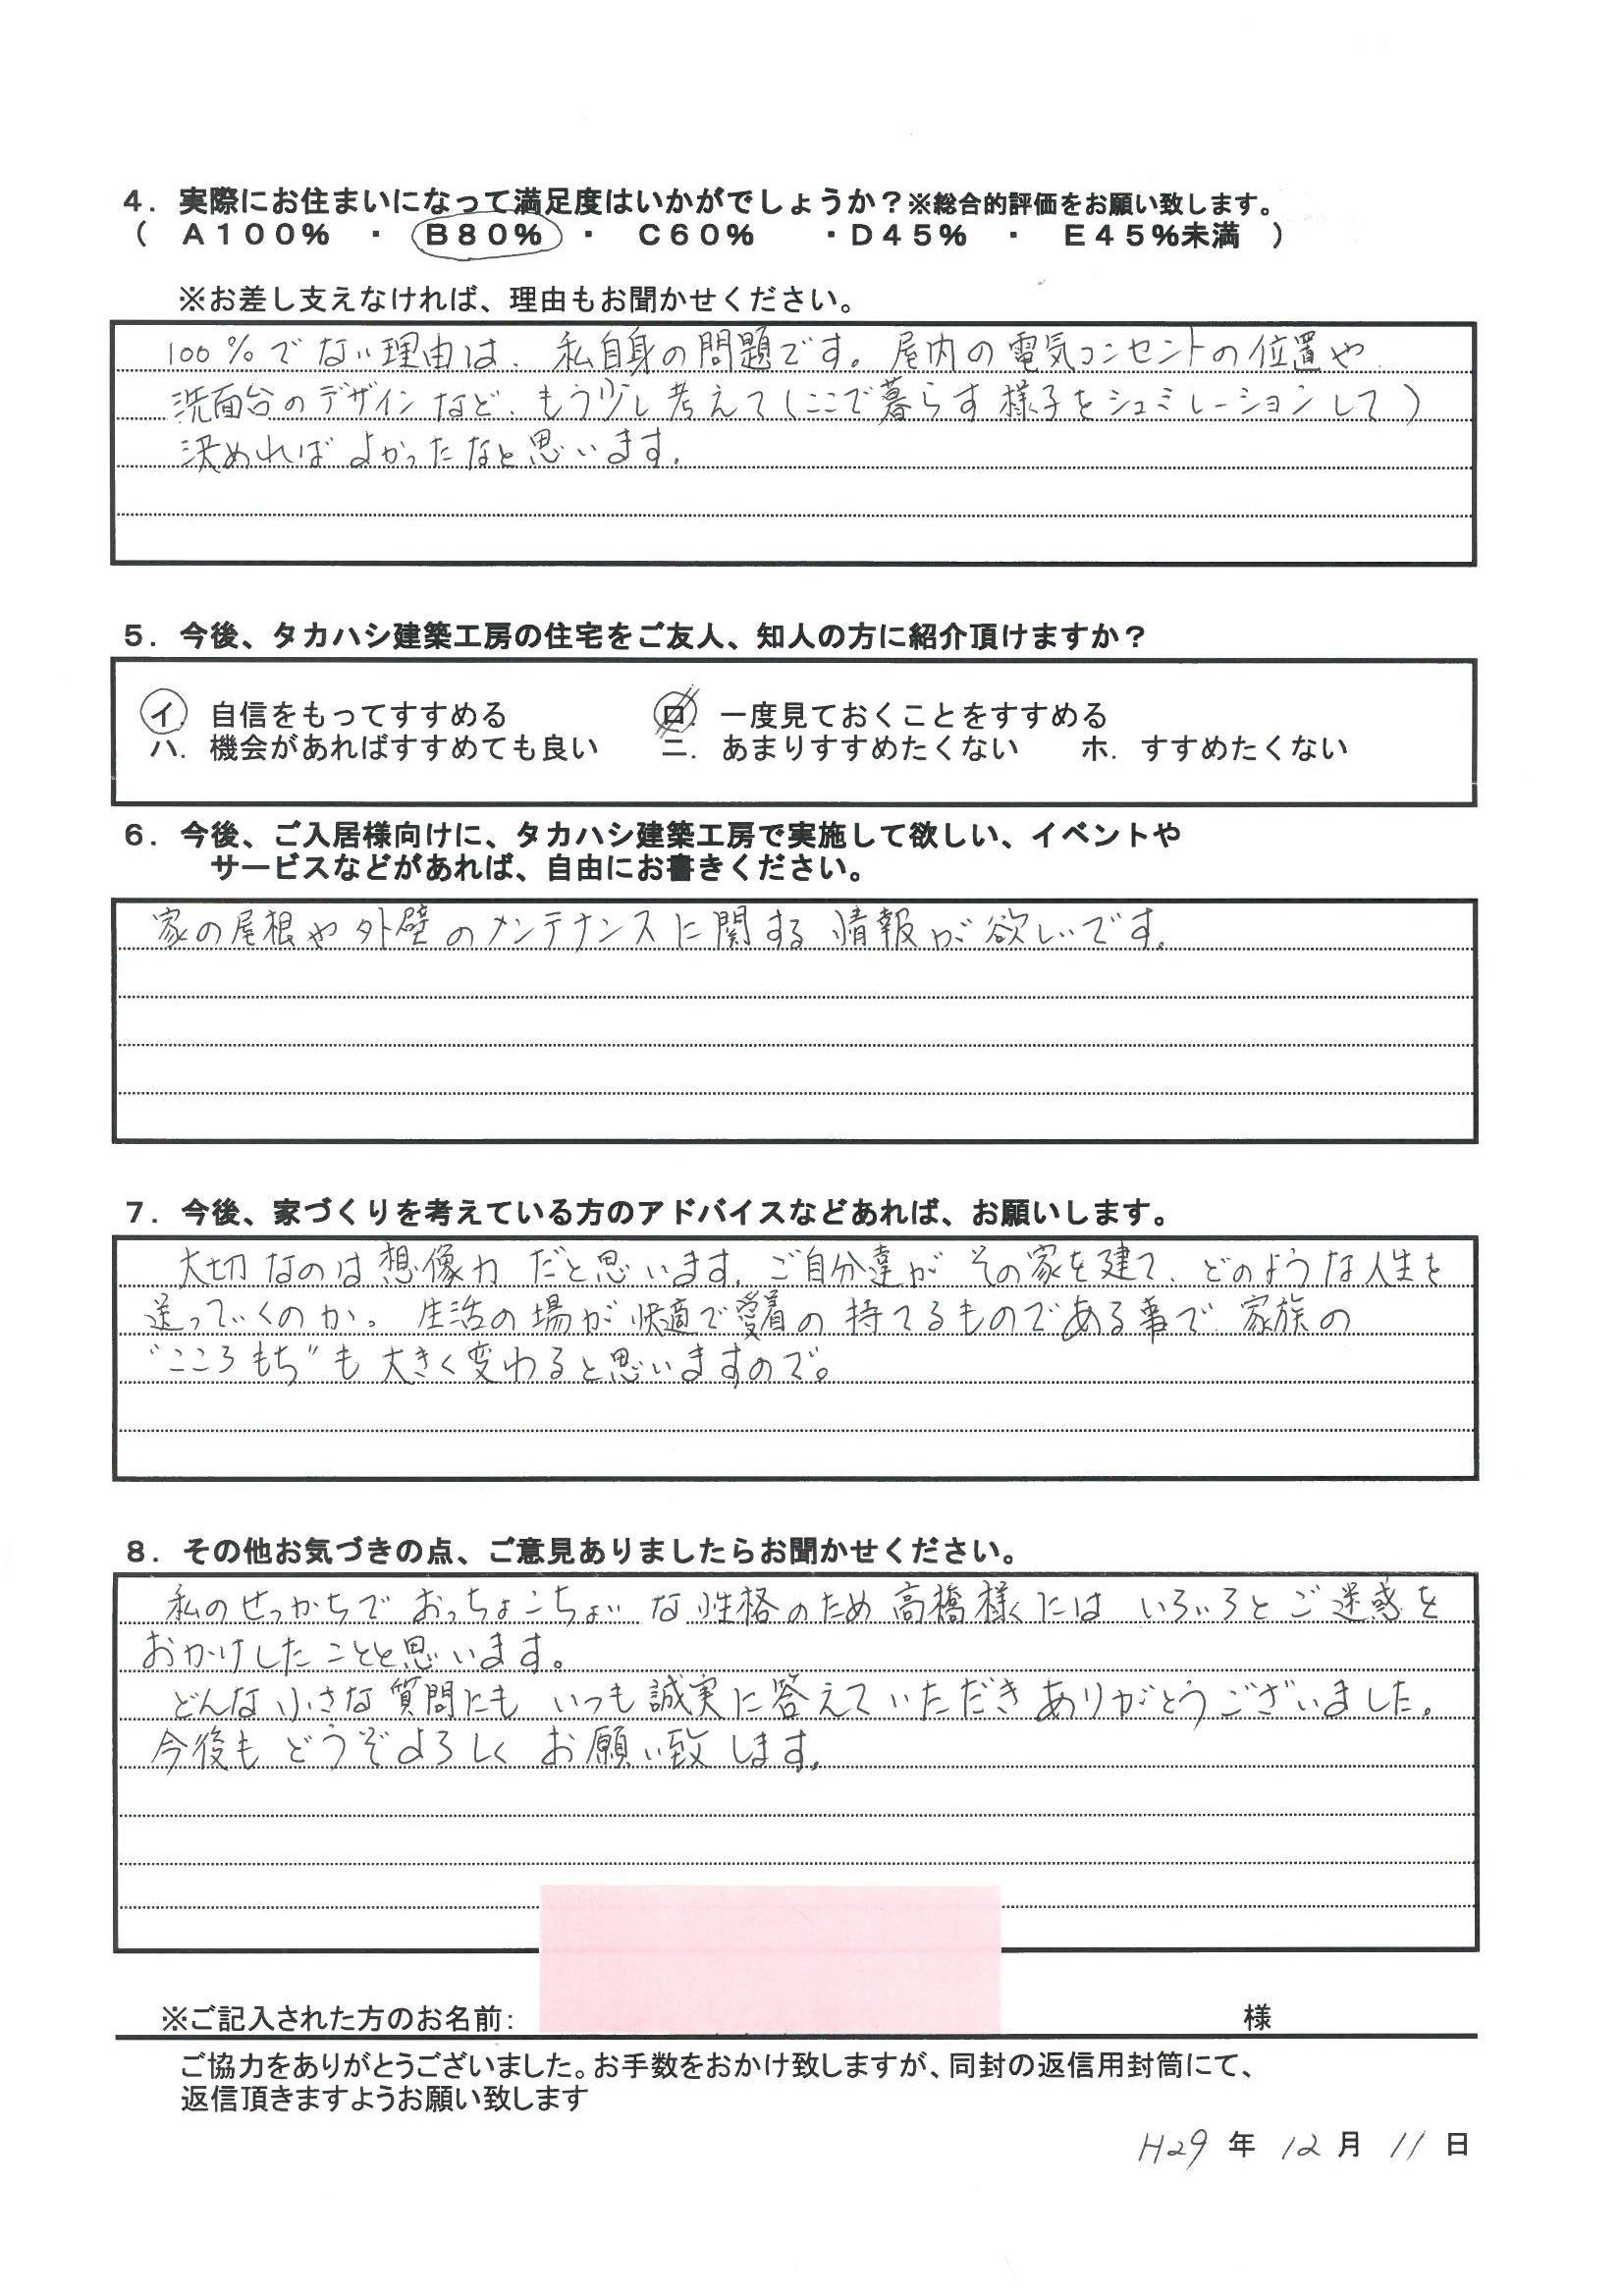 ４．実際にお住まいになって満足度はいかがでしょうか？※総合的評価をお願い致します。
（　Ａ１００％　・　Ｂ８０％　・　Ｃ６０％　　・Ｄ４５％　・　Ｅ４５％未満　）
※お差し支えなければ、理由もお聞かせください。
100％でない理由は、私自身の問題です。屋内の電気コンセントの位置や
洗面台のデザインなど、もう少し考えて（ここで暮らす様子をシュミレーションして）
決めればよかったなと思います。
５．今後、タカハシ建築工房の住宅をご友人、知人の方に紹介頂けますか？
イ．自信をもってすすめる　　ロ．一度見ておくことをすすめる
ハ．機会があればすすめても良い　　ニ．あまりすすめたくない　　ホ．すすめたくない
６．今後、ご入居様向けに、タカハシ建築工房で実施して欲しい、イベントや
サービスなどがあれば、自由にお書きください。
家の屋根や外壁のメンテナンスに関する情報が欲しいです。
７．今後、家づくりを考えている方のアドバイスなどあれば、お願いします。
大切なのは想像力だと思います。ご自分達がその家を建て、どのような人生を
送っていくのか。生活の場が快適で愛着の持てるものである事で家族の
"こころもち"も大きく変わると思いますので。
８．その他お気づきの点、ご意見ありましたらお聞かせください。
私のせっかちでおっちょこちょいな性格のため高橋様にはいろいろとご迷惑を
おかけしたことと思います。
どんな小さな質問にもいつも誠実に答えていただきありがとうございました。
今後もどうぞよろしくお願い致します。
※ご記入された方のお名前：　　様
ご協力をありがとうございました。お手数をおかけ致しますが、同封の返信用封筒にて、
返信頂きますようお願い致します
H29 年 12 月 11 日